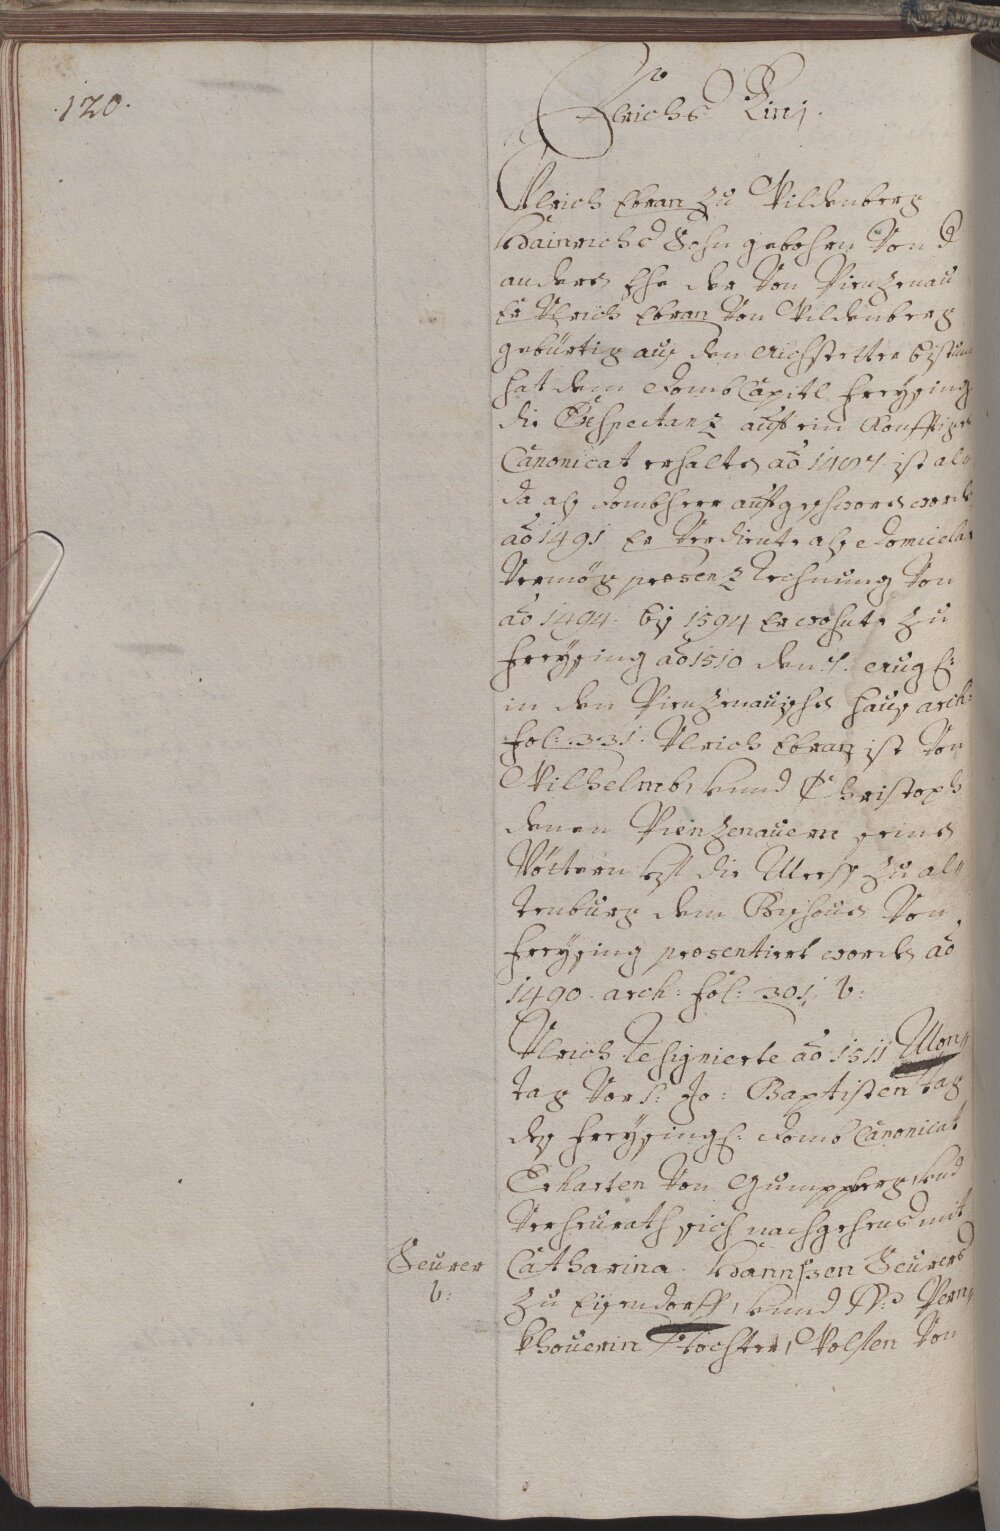 .120.
Ulrichs Lini.
Ulrich Ebran zu Wildenberg
Hainrichs Sohn gebohrn von d
anders Ehe der von Pienzenau
Er Ulrich Ebran von Wildenberg
gebürtig aus den Aichstetter bistum
hat dem Domb Capitl Freysing
die Exspectanz auff ein Konfftiges
Canonicat erhalten aõ 1487 ist al„
da als Dombherr auffgeschworn worden
aõ 1491 Er verdiente als Domicelar
Vermög præsenz Rechnung von
aõ 1494. bis 1594 Er wohnte zu
Freysing aõ 1510 den 7. Aug
in den Pienzenauischen haus arch:
fol: 331. Ulrich Ebran ist von
Wilhelmb, unnd Christoph
denen Pienzenauern seine
Vöttern auf die Mess zu al„
tenburg dem Bischove von
Freysing præsentiert worden aõ
1490. arch: fol: 301. v:
Ulrich Resignierte aõ 1511 Mon„
tag vor S: Jo: Baptisten tag
des Freysing: Domb Canonicat
Erharten von Gumppberg, und
Verheurath sich nachgehends mit
Seurer Catharina. Hannssen Seurers
v: zu Eisendorff, unnd Pern„
khoverin Tochter, Wolffen von